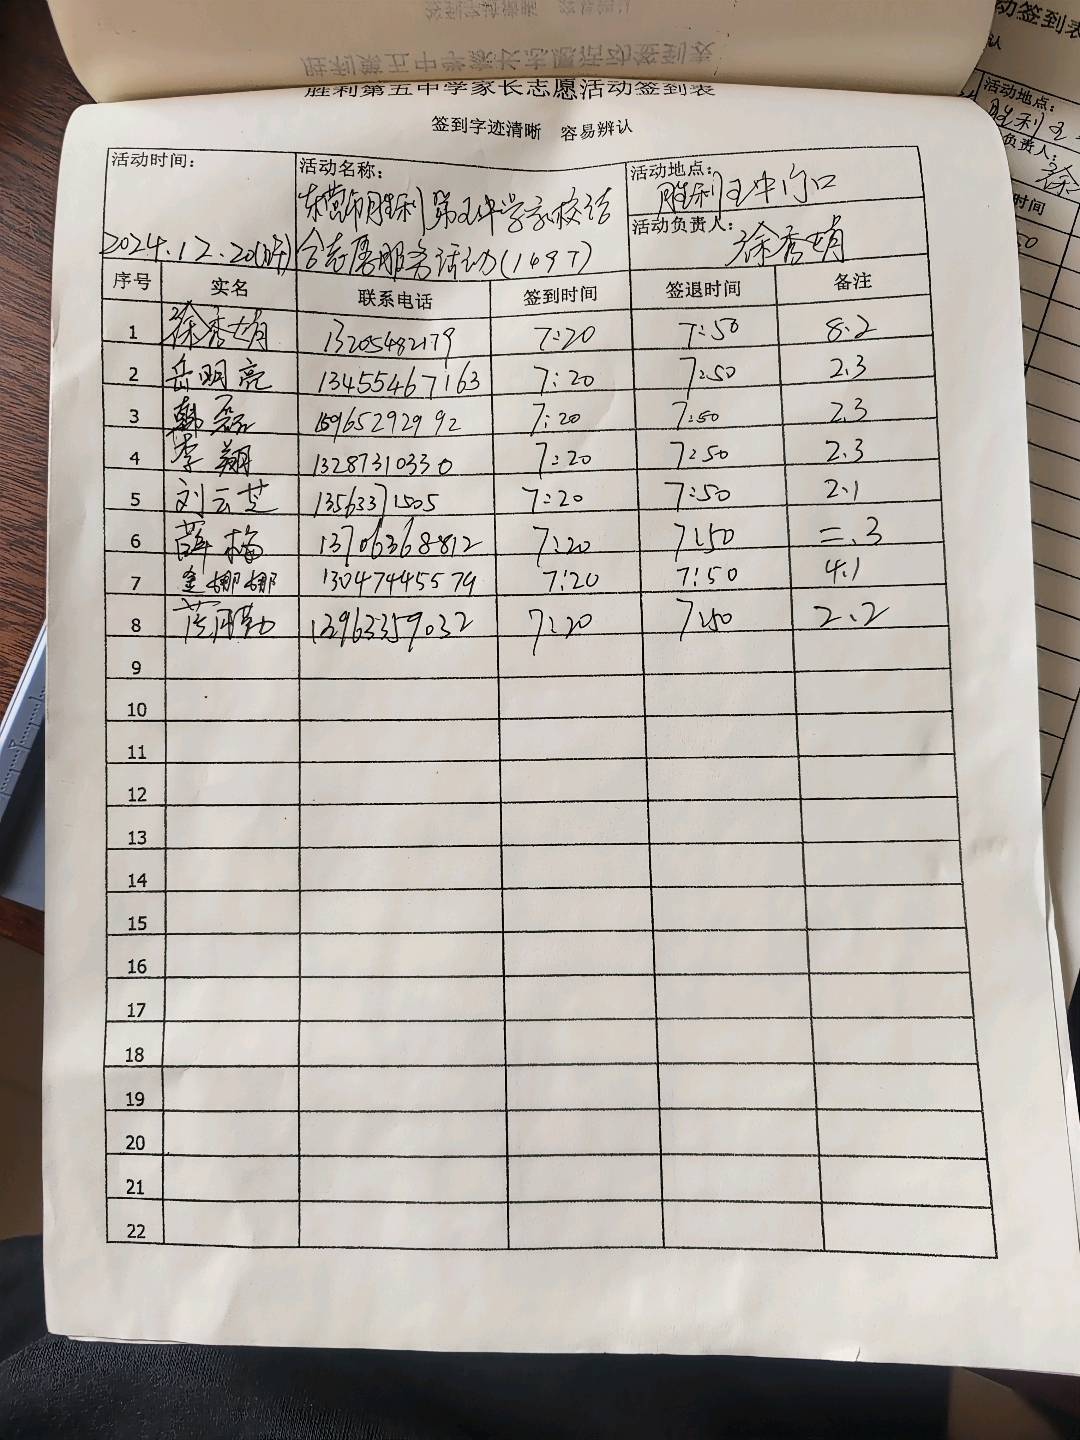 胜利第五中学家长志愿活动签到表
签到字迹清晰 容易辨认
活动时间: 活动名称: 活动地点:
东营市胜利第五中学家校结 胜利五中门口
活动负责人:
2024.12.20 合志愿服务活动(149T) 徐秀娟
序号 实名 联系电话 签到时间 签退时间 备注
1 徐秀娟 13205482179 7:20 7:50 8.2
2 岳明亮 13455467163 7:20 7:50 2.3
3 韩磊 15965292992 7:20 7:50 2.3
4 李翔 13287310330 7:20 7:50 2.3
5 刘云芝 13563371505 7:20 7:50 2.1
6 薛梅 13706368812 7:20 7:50 二.3
7 娜娜 13047445579 7:20 7:50 4.1
8 13963359032 7:20 7:50 2.2
9
10
11
12
13
14
15
16
17
18
19
20
21
22
动签到表
认
活动地点:
胜利五
负责人:
徐
时间